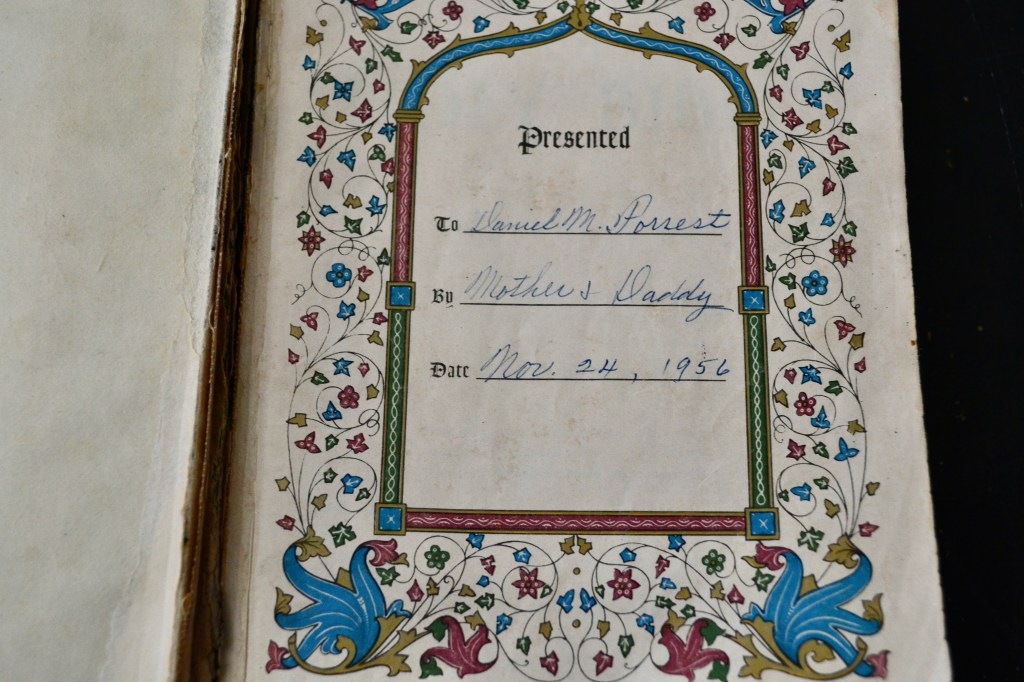 Presented
To Daniel M. Forrest
By Mother & Daddy
Date Nov. 24, 1956